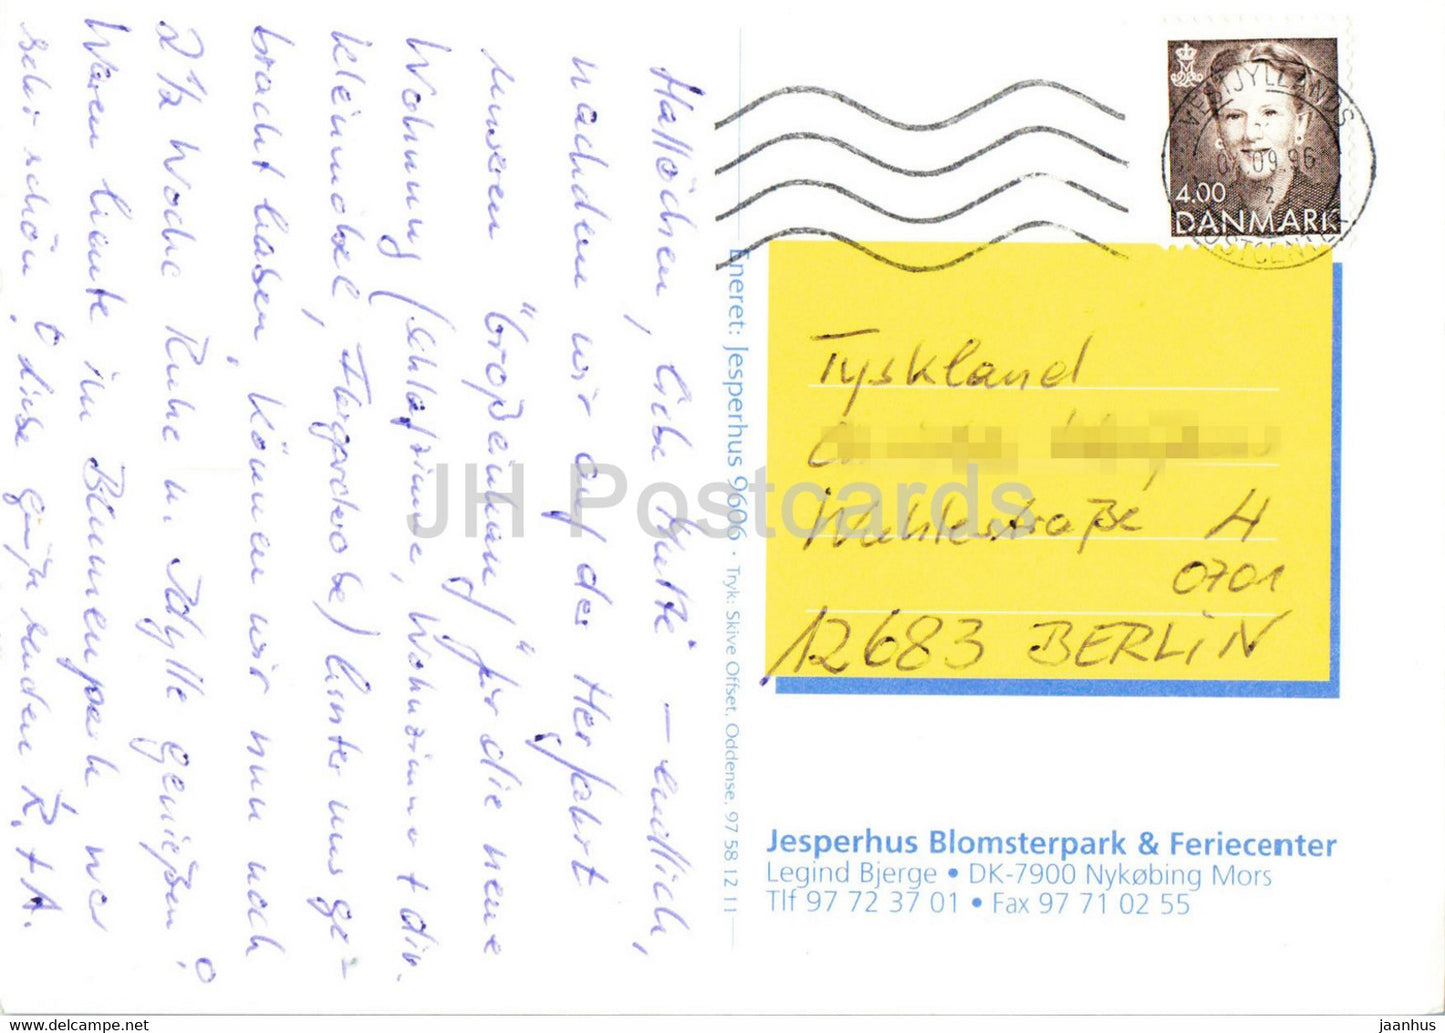 Hallöchen, liebe Mutti – endlich,
nachdem wir auf der Herfahrt
unseren "Großeinkauf" für die neue
Wohnung (Schlafzimmer, Wohnzimmer + div.
Kleinmöbel, Flurgarderobe) hinter uns ge-
bracht haben, können wir nun noch
2 1/2 Woche Ruhe u. Idylle genießen!
Waren heute im Blumenpark, war
sehr schön! Liebe Grüße senden R. + A.
Eneret: Jesperhus 9606 · Tryk: Skive Offset, Oddense, 97 58 12 11
VESTJYLLANDS
09.96
2
POSTCENTER
4.00
DANMARK
Tyskland
Wuhlestraße 4
0701
12683 BERLIN
Jesperhus Blomsterpark & Feriecenter
Legind Bjerge • DK-7900 Nykøbing Mors
Tlf 97 72 37 01 • Fax 97 71 02 55
JH Postcards
jaanhus
https://www.jhpostcards.com